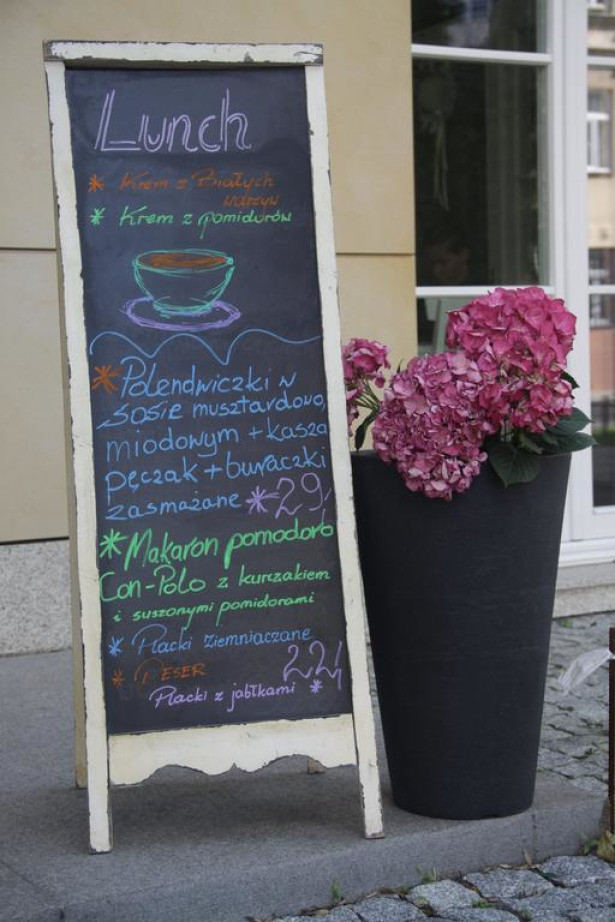 Lunch
* Krem z Białych
warzyw
* Krem z pomidorów
* Polendwiczki w
sosie musztardowo,
miodowym + kasza
pęczak + buraczki
zasmażane * 29,
* Makaron pomodoro
Con-Polo z kurczakiem
i suszonymi pomidorami
* Placki ziemniaczane
* DESER 22,
Placki z jabłkami *